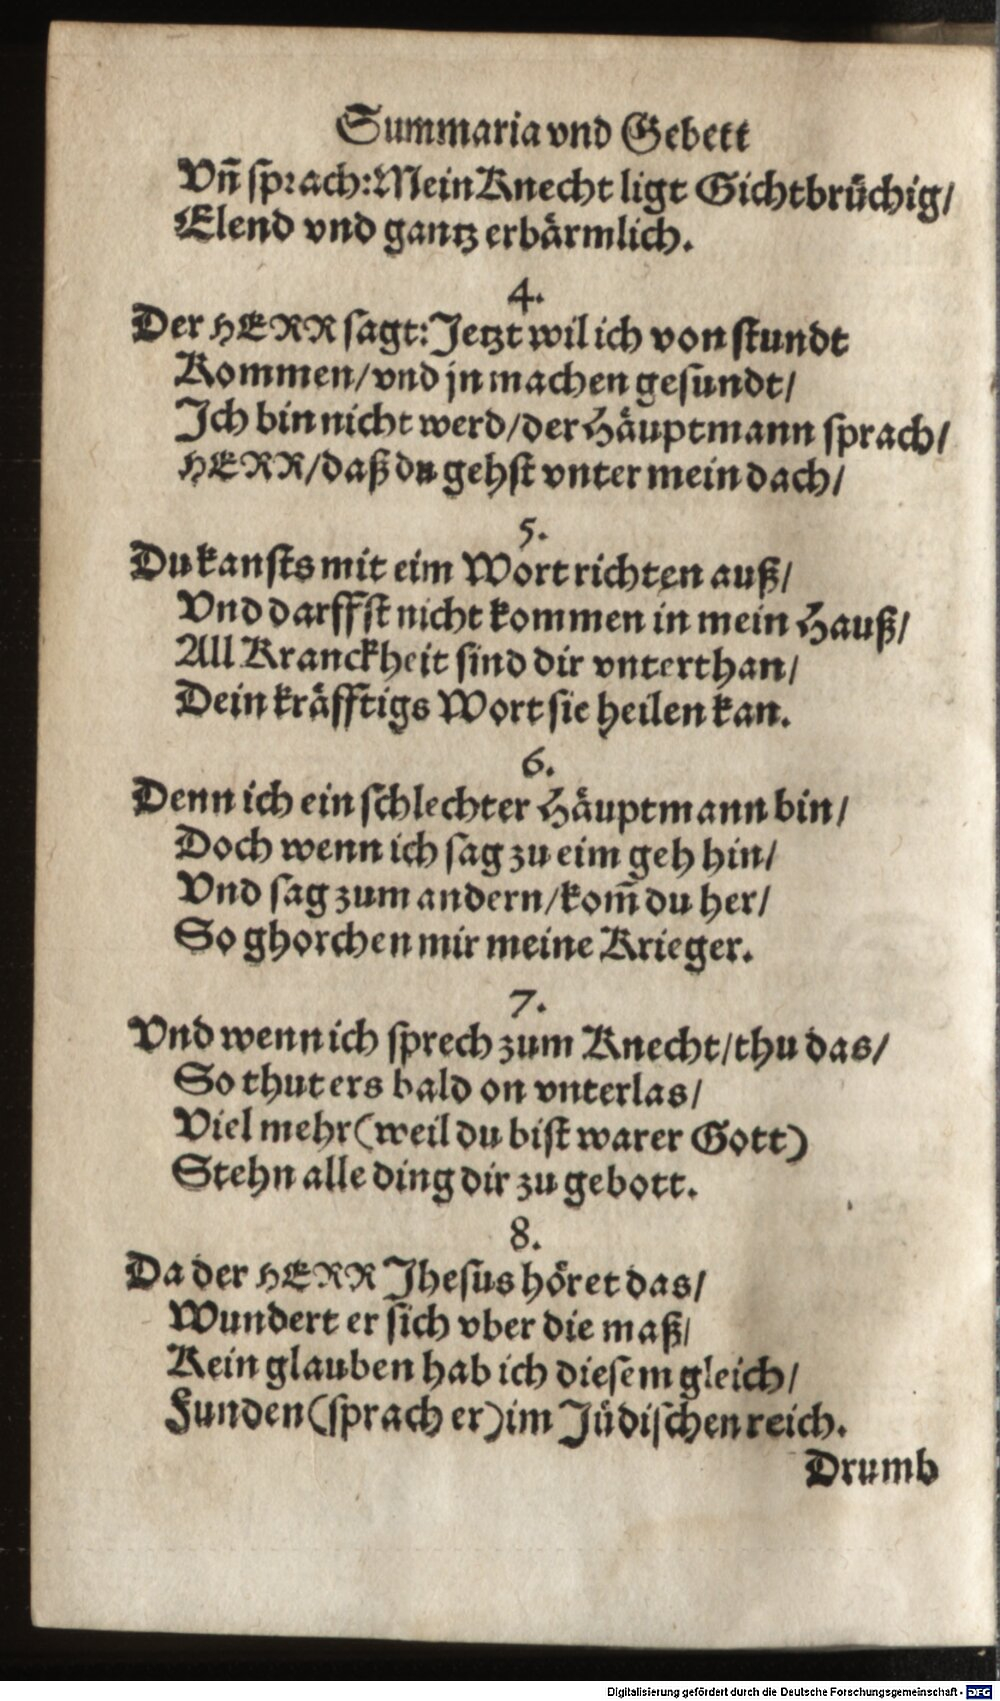 Summaria vnd Gebett
Vñ sprach: Mein Knecht ligt Gichtbrüchig/
Elend vnd gantz erbärmlich.
4.
Der HERR sagt: Jetzt wil ich von stundt
Kommen/ vnd jn machen gesundt/
Ich bin nicht werd/ der Häuptmann sprach/
HERR/ daß du gehst vnter mein dach/
5.
Du kansts mit eim Wort richten auß/
Vnd darffst nicht kommen in mein Hauß/
All Kranckheit sind dir vnterthan/
Dein kräfftigs Wort sie heilen kan.
6.
Denn ich ein schlechter Häuptmann bin/
Doch wenn ich sag zu eim geh hin/
Vnd sag zum andern/ kom̃ du her/
So ghorchen mir meine Krieger.
7.
Vnd wenn ich sprech zum Knecht/ thu das/
So thut ers bald on vnterlas/
Viel mehr (weil du bist warer Gott)
Stehn alle ding dir zu gebott.
8.
Da der HERR Jhesus höret das/
Wundert er sich vber die maß/
Kein glauben hab ich diesem gleich/
Funden (sprach er) im Jüdischen reich.
Drumb
Digitalisierung gefördert durch die Deutsche Forschungsgemeinschaft - DFG